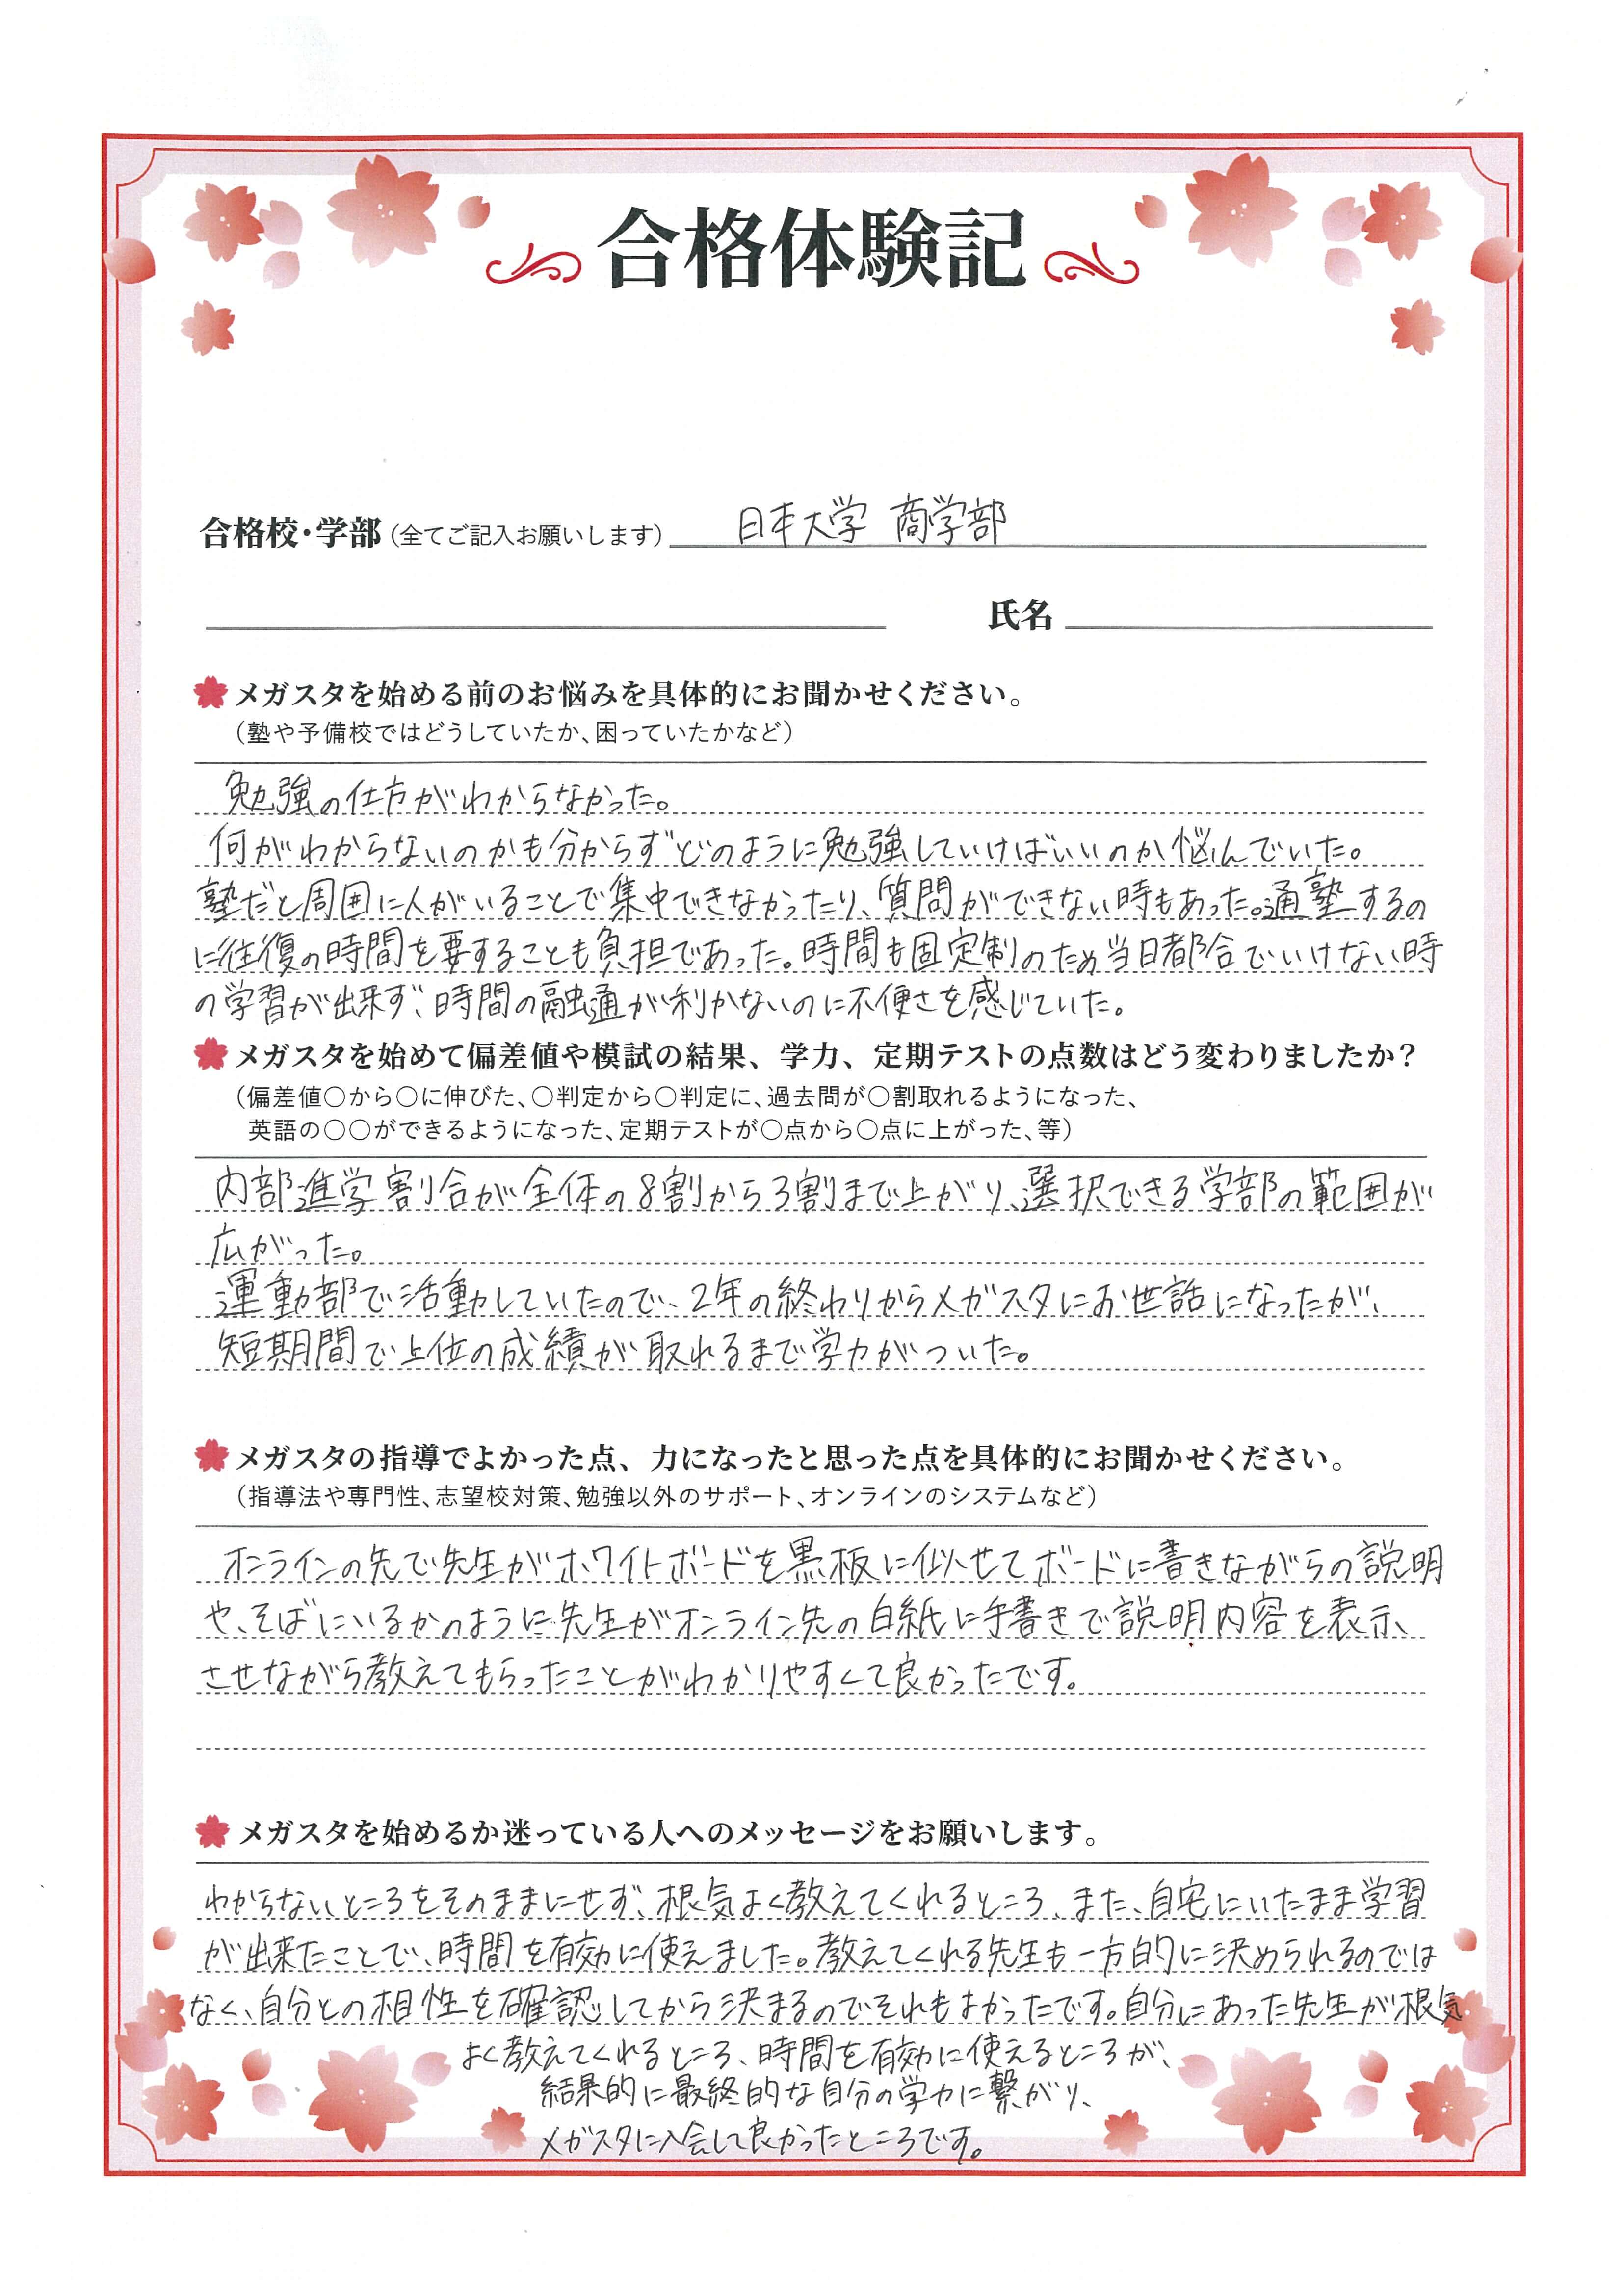 合格体験記
合格校・学部（全てご記入お願いします） 日本大学 商学部
氏名
メガスタを始める前のお悩みを具体的にお聞かせください。
（塾や予備校ではどうしていたか、困っていたかなど）
勉強の仕方がわからなかった。
何がわからないのかも分からずどのように勉強していけばいいのか悩んでいた。
塾だと周囲に人がいることで集中できなかったり、質問ができない時もあった。通塾するの
に往復の時間を要することも負担であった。時間も固定制のため当日都合でいけない時
の学習が出来ず、時間の融通が利かないのに不便さを感じていた。
メガスタを始めて偏差値や模試の結果、学力、定期テストの点数はどう変わりましたか？
（偏差値○から○に伸びた、○判定から○判定に、過去問が○割取れるようになった、
英語の○○ができるようになった、定期テストが○点から○点に上がった、等）
内部進学割合が全体の8割から3割まで上がり、選択できる学部の範囲が
広がった。
運動部で活動していたので、2年の終わりからメガスタにお世話になったが、
短期間で上位の成績が取れるまで学力がついた。
メガスタの指導でよかった点、力になったと思った点を具体的にお聞かせください。
（指導法や専門性、志望校対策、勉強以外のサポート、オンラインのシステムなど）
オンラインの先で先生がホワイトボードを黒板に似せてボードに書きながらの説明
や、そばにいるかのように先生がオンライン先の白紙に手書きで説明内容を表示、
させながら教えてもらったことがわかりやすくて良かったです。
メガスタを始めるか迷っている人へのメッセージをお願いします。
わからないところをそのままにせず、根気よく教えてくれるところ、また、自宅にいたまま学習
が出来たことで、時間を有効に使えました。教えてくれる先生も一方的に決められるのでは
なく、自分との相性を確認してから決まるのでそれもよかったです。自分にあった先生が根気
よく教えてくれるところ、時間を有効に使えるところが、
結果的に最終的な自分の学力に繋がり、
メガスタに入会して良かったところです。